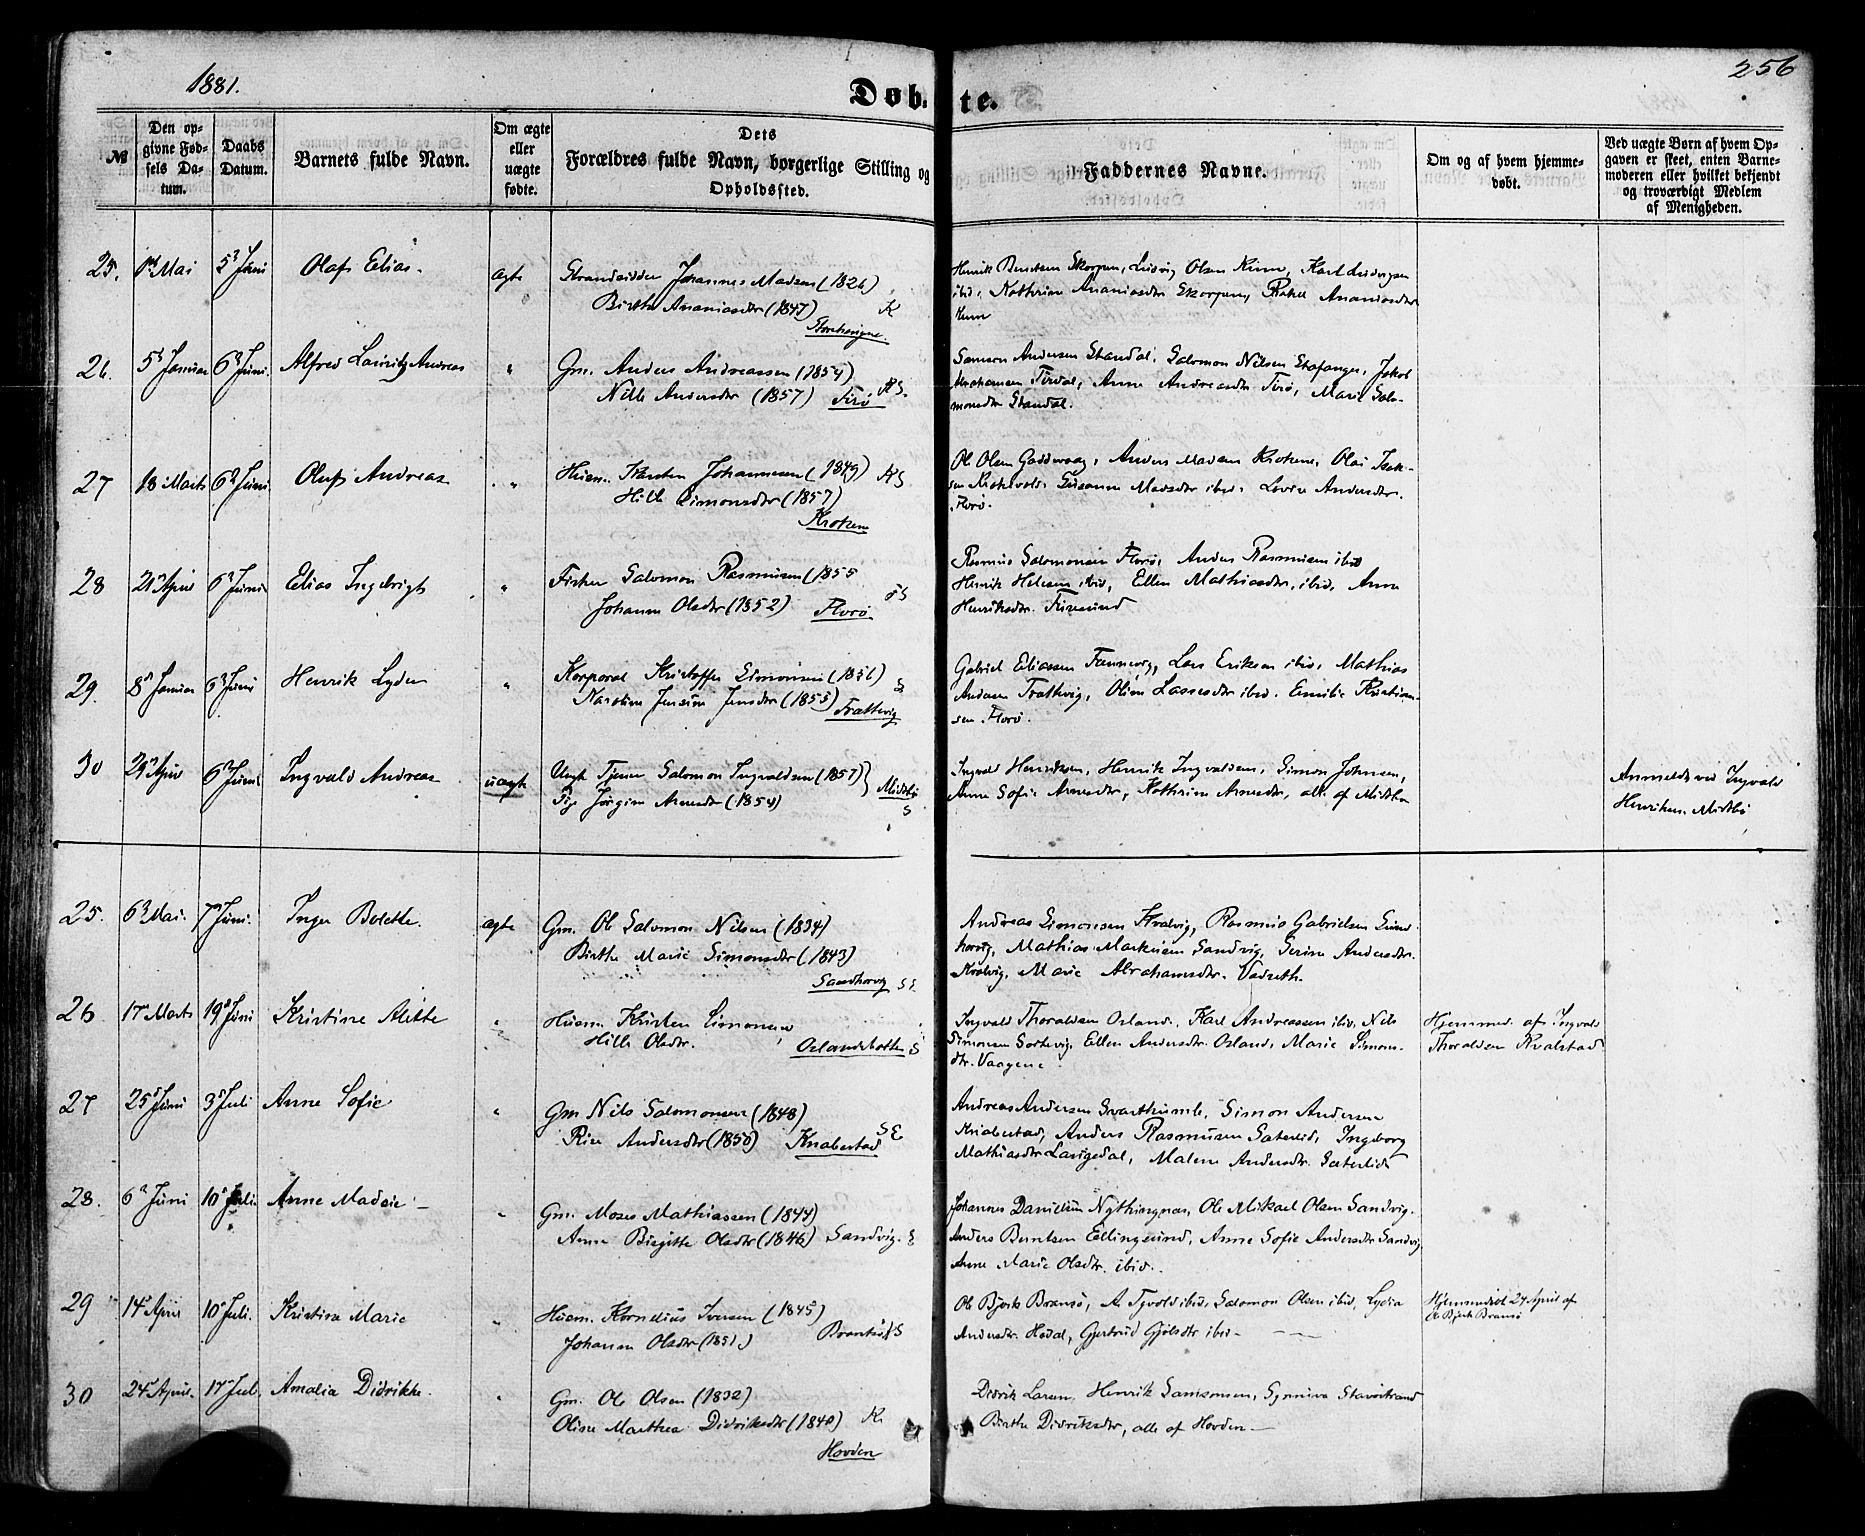 1881.
256
Døbte.
№
Den opgivne Fødsels Datum.
Daabs Datum.
Barnets fulde Navn.
Om ægte eller uægte fødte.
Dets Forældres fulde Navn, borgerlige Stilling og Opholdssted.
Faddernes Navne.
Om og af hvem hjemmedøbt.
Ved uægte Børn af hvem Opgaven er skeet, enten Barnemoderen eller hvilket bekjendt og troværdigt Medlem af Menigheden.
25. Mai 5 Juni Olaf Elias. ægte
Johannes Madsen (1826)
Birthe Ananiasdtr (1847) K
Henrik Berntsen Skorpen, Ludvig Olsen Kinn, Karl Ludvigsen
ibid, Kathrine Ananiasdtr Skorpen, Rakel Ananiasdtr
Kinn
26. 5 Januar 6 Juni. Alfred Lauritz Andreas "
Gm. Anders Andreassen (1854)
Nille Andersdtr (1857)
Samson Andersen Standal, Salomon Nilsen Stafanger, Jakob
Abrahamsen, Anne Andreasdtr, Marie Salomonsdtr Standal.
27 18 Marts 6 Juni Oluf Andreas "
Huusm. Karsten Johannesen (1849) KS.
Hille Simonsdtr (1857)
Krokene
Ole Olsen, Anders Madsen Krokene, Olai
Susanne Madsdtr ibid, Lovise Andersdtr.
Florø.
28 21 April 6 Juni Elias Ingebrigt "
Fisker Salomon Rasmusen (1855
Johanne Olsdtr (1852) Florø
Rasmus Salomonsen Florø, Anders Rasmusen ibid
Henrik ibid, Ellen Mathiasdtr, ibid, Anne
Henriksdtr.
29. 8 Januar 6 Juni Henrik Lyder "
Korporal Kristoffer Simonsen (1856) S
Jensine Jensdtr (1855) Trættevig
Gabriel Eliassen, Lars Eriksen ibid, Mathias
Andersen Trættevig, Oline Lassesdtr ibid. Emilie Kristiansen Florø.
30 29 April 6 Juni Ingvald Andreas uægte
Ungk. Tjener Salomon Ingvaldsen (1857)
Pige Jørgine Arnesdtr (1854) S
Ingvald Henriksen, Henrik Ingvaldsen, Simon Johnsen,
Anne Sofie Arnesdtr, Kathrine Arnesdtr, alle af Midtbø
Anmeldt ved Ingvald
Henriksen Midtbø
25. 6 Mai. 7 Juni. Inger Bolette. ægte
Gm. Ole Salomon Nilsen (1834)
Birthe Marie Simonsdtr (1843)
Sandhorvig
Andreas Simonsen Kvalvig, Rasmus Gabrielsen
Mathias Markusen Sandvig, Serine Andersdtr.
Kvalvig, Marie Abrahamsdtr. Vadseth.
26 17 Marts 19 Juni Kristine Alette "
Huusm. Kristen Simonsen
Hille Olsdtr. Oslandsbotten S
Ingvald Thoraldsen Osland, Karl Andreassen ibid, Nils
Simonsen, Ellen Andersdtr. Osland, Marie Simonsdtr. Vaagene
Hjemmed. af Ingvald
Thoraldsen Kvalstad
27 25 Juni 3 Juli Anne Sofie "
Gm Nils Salomonsen (1848)
Andersdtr (1850) Knabestad SE
Andreas Andersen Svarthumle, Simon Andersen
Knabestad, Anders Rasmusen Sæterlid, Ingeborg
Mathiasdtr Langedal, Malene Andersdtr. Sæterlid
28. 6 Juni 10 Juli. Anne Madsie
Gm. Moses Mathiassen (1844)
Anne Birgitte Olsdtr (1846) Sandvig. E
Johannes Danielsen, Ole Mikael Olsen Sandvig.
Anders Berntsen Ellingsund, Anne Sofie Andersdtr Sandvig
Anne Marie Olsdtr. ibid.
29 14 April 10 Juli. Kristine Marie
Huusm. Kornelius Iversen (1845)
Johanne Olsdtr (1851)
Ole Bjørk Bransø, A. Tyvold ibid, Salomon Olsen ibid, Lydia
Andersdtr. Hovdal, Gjertrud ibid
Hjemmedøbt 24 April af
Ole Bjørk Bransø
30 24 April. 17 Juli. Amalia Didrikke.
Gm. Ole Olsen (1832)
Oline Marthea Didriksdtr (1840) K.
Hovden
Didrik Larsen, Henrik Samsonsen, Synneva
Birthe Didriksdtr, alle af Hovden